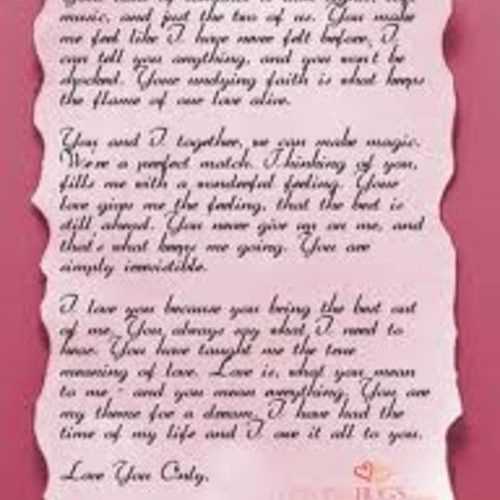 music, and just the two of us. You make
me feel like I have never felt before, I
can tell you anything, and you won't be
shocked. Your undying faith is what keeps
the flame of our love alive.
You and I together, we can make magic.
We're a perfect match. Thinking of you,
fills me with a wonderful feeling. Your
love gives me the feeling, that the best is
still ahead. You never give up on me, and
that's what keeps me going. You are
simply irresistible.
I love you because you bring the best out
of me. You always say what I need to
hear. You have taught me the true
meaning of love. Love is, what you mean
to me - and you mean everything. You are
my theme for a dream. I have had the
time of my life and I owe it all to you.
Love You Only.